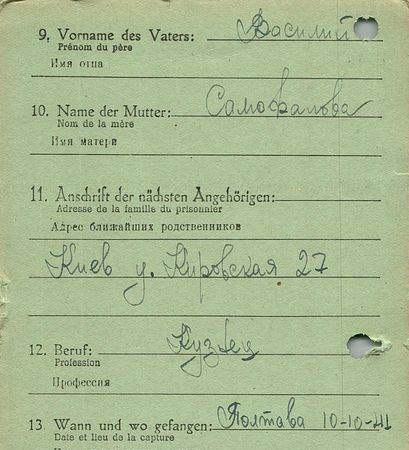 9. Vorname des Vaters: Василий
Prénom du père
Имя отца
10. Name der Mutter: Самофалова
Nom de la mère
Имя матери
11. Anschrift der nächsten Angehörigen:
Adresse de la famille du prisonnier
Адрес ближайших родственников
Киев у. Кировская 27
12. Beruf: Кузнец
Profession
Профессия
13 Wann und wo gefangen: Полтава 10-10-41
Date et lieu de la capture